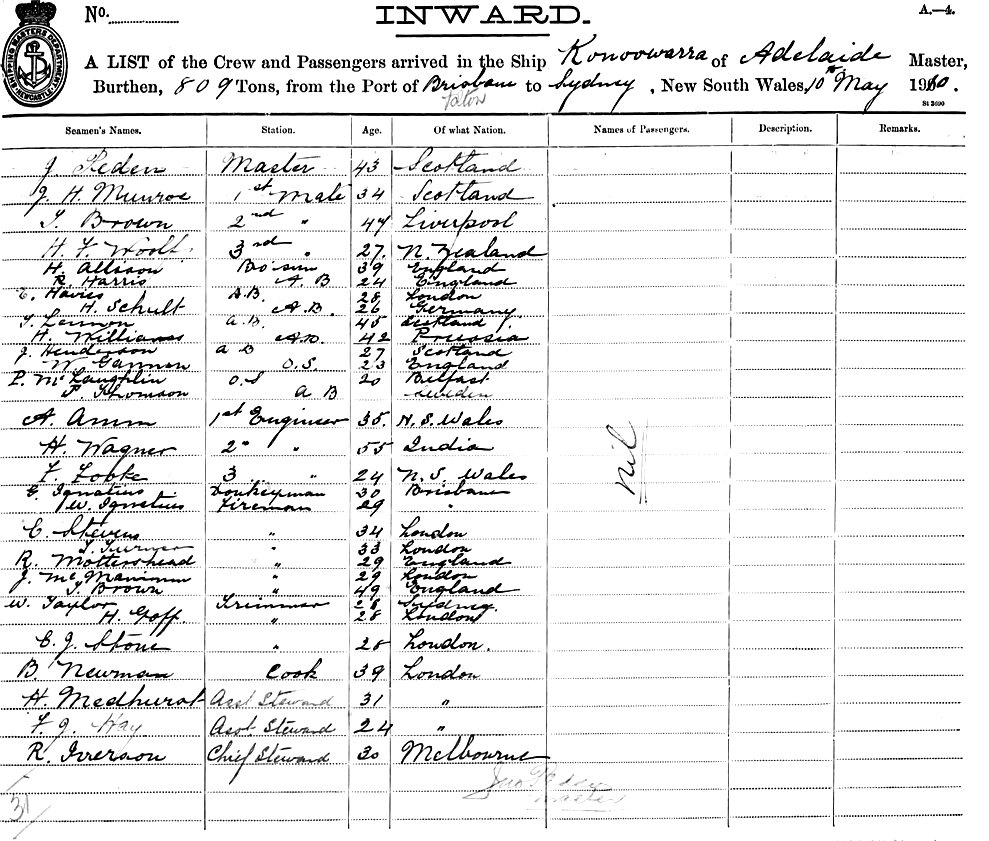 No.
INWARD.
A.—4.
A LIST of the Crew and Passengers arrived in the Ship Konoowarra of Adelaide Master,
Burthen, 809 Tons, from the Port of Brisbane to Sydney, New South Wales, 10th May 1910.
St 3690
Seamen's Names. Station. Age. Of what Nation. Names of Passengers. Description. Remarks.
J. Peden Master 43 Scotland
J. H. Munroe 1st Mate 34 Scotland
T. Brown 2nd " 47 Liverpool
H. F. 3rd " 27. N. Zealand
H. Allsson Bo'sun 39 England
R. Harris A. B 24 England
E. Havies A.B. 28 London
H. Schult A.B. 26 Germany
T. Lennon a.B. 45 Scotland
H. Williams A.B. 42 Prussia
J. Henderson a B 27 Scotland
W. Gannon O.S. 23 England
P. McLaughlin O.S 20 Belfast
P. Thomson a B Sweden
A. Amm 1st Engineer 35. N. S. Wales
H. Wagner 2" " 55 India
F. 3 " 24 N. S. Wales
G. Ignatius Donkeyman 30 Brisbane
W. Ignatius Fireman 29 "
C. Stevens " 34 London
T. Turner " 33 London
R. Mottershead " 29 England
J. " 29 London
T. Brown " 49 England
W. Taylor Trimmer 28 Sydney.
H. Goff. " 28 London
C. J. Stone " 28 London.
B. Newman Cook 39 London
H. Medhurst Asst Steward 31 "
F. J. Hay Asst Steward 24 "
R. Iverson Chief Steward 30 Melbourne
nil
Jno Peden
Master
31